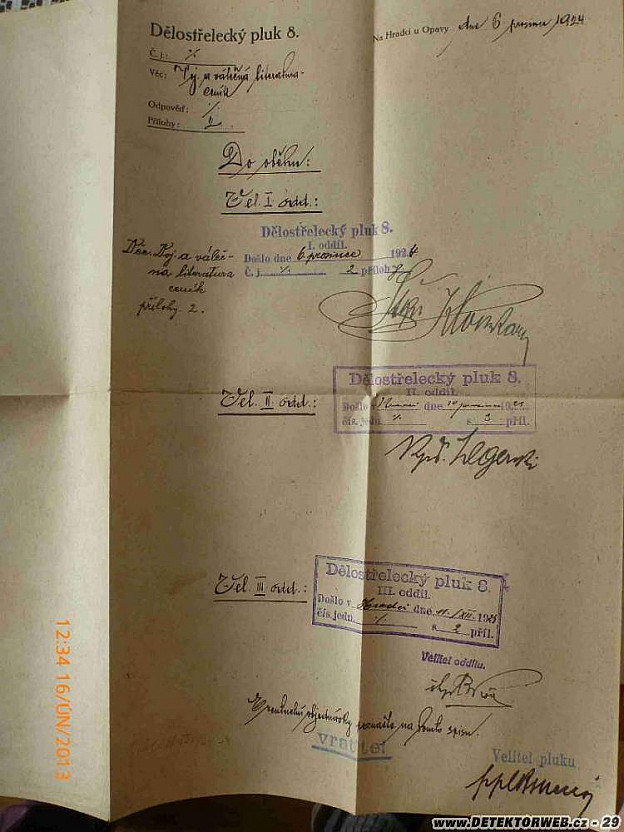 Dělostřelecký pluk 8.
Na Hradci u Opavy, dne 6. prosince 1924
Č. j.: ⁒
Věc: Voj. a válečná literatura-
ceník
Odpověď: ⁒
Přílohy: 2.
Do oběhu:
Vel. I. odd.:
Dělostřelecký pluk 8.
I. oddíl.
Došlo dne 6. prosince 1924
Č. j. ⁒ 2 příloh
Voj. a váleč-
ná literatura
ceník
přílohy 2.
Vel. II odd.:
Dělostřelecký pluk 8.
II. oddíl.
Došlo dne 19
čís. jedn. ⁒ s 3 příl.
Vel. III odd.:
Dělostřelecký pluk 8.
III. oddíl.
Došlo v Hradci dne 11./XII. 192
čís. jedn. ⁒ s 2 příl.
Velitel oddílu.
Eventuelní objednávky na tomto spisu.
vrátite!
Velitel pluku
12:34 16/ÚN/2013
www.DETEKTORWEB.cz - 29